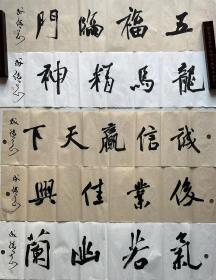 五福臨門
龍馬精神
誠信贏天下
業佳興
氣若幽蘭